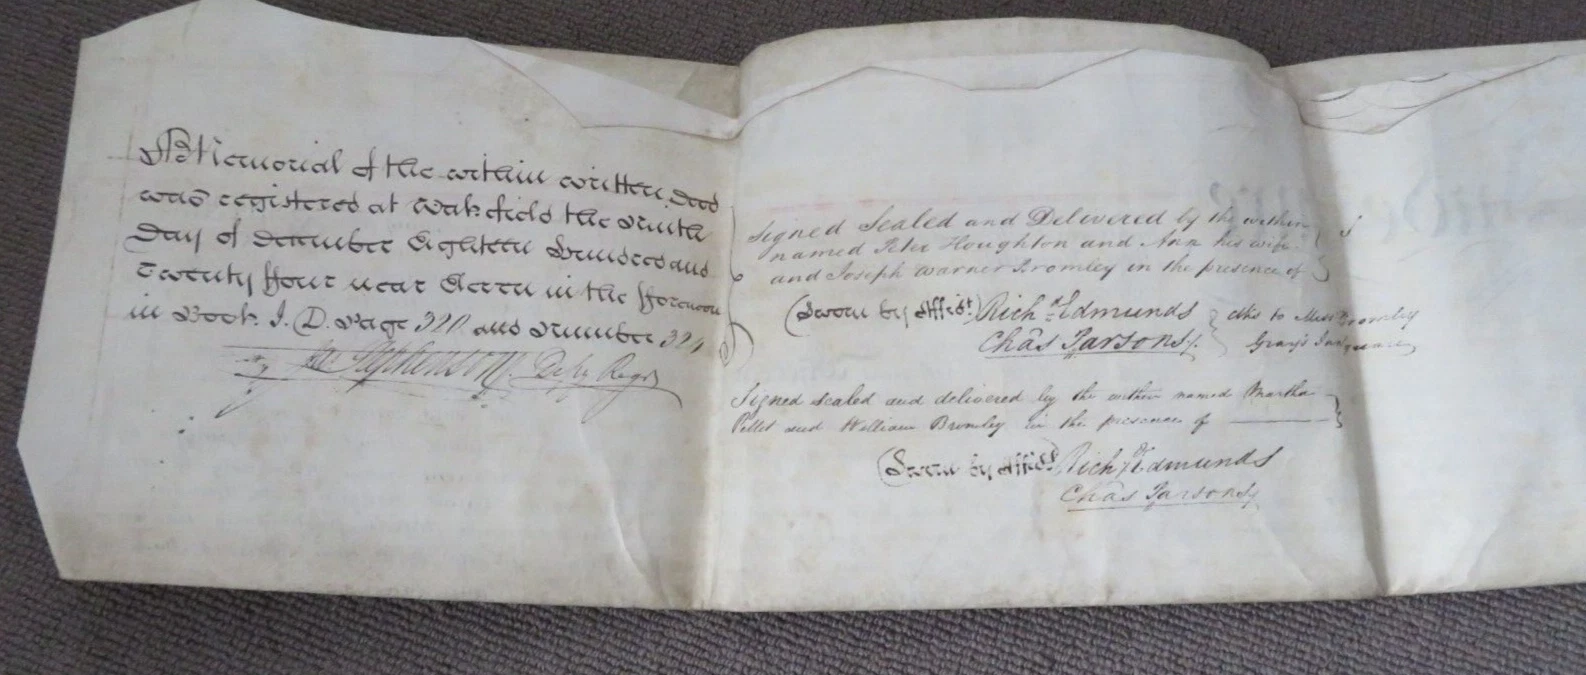 A Memorial of the within written Deed
was registered at Wakefield the Ninth
Day of December Eighteen Hundred and
Twenty ffour near Eleven in the fforenoon
in Book I. D. Page 320 and Number 324
Stephenson Dep'y Reg'r
Signed Sealed and Delivered by the within
named Peter Houghton and Ann his wife
and Joseph Warner Bromley in the presence of
(Sworn by Affidt.) Richd. Edmunds
Chas Parsons
Clks to Messrs Bromley
Gray's Inn Square
Signed sealed and delivered by the within named Martha
Pellet and William Bromley in the presence of
(Sworn by Affidt.) Richd. Edmunds
Chas Parsons